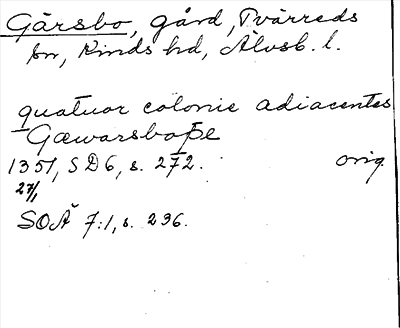 Gärsbo, gård, Tvärreds
sn, Kinds hd, Älvsb. l.
quatuor colonie adiacentes
Gæwarsboþe
1351, SD6, s. 272. orig.
27/1
SOÄ 7:1, s. 296.